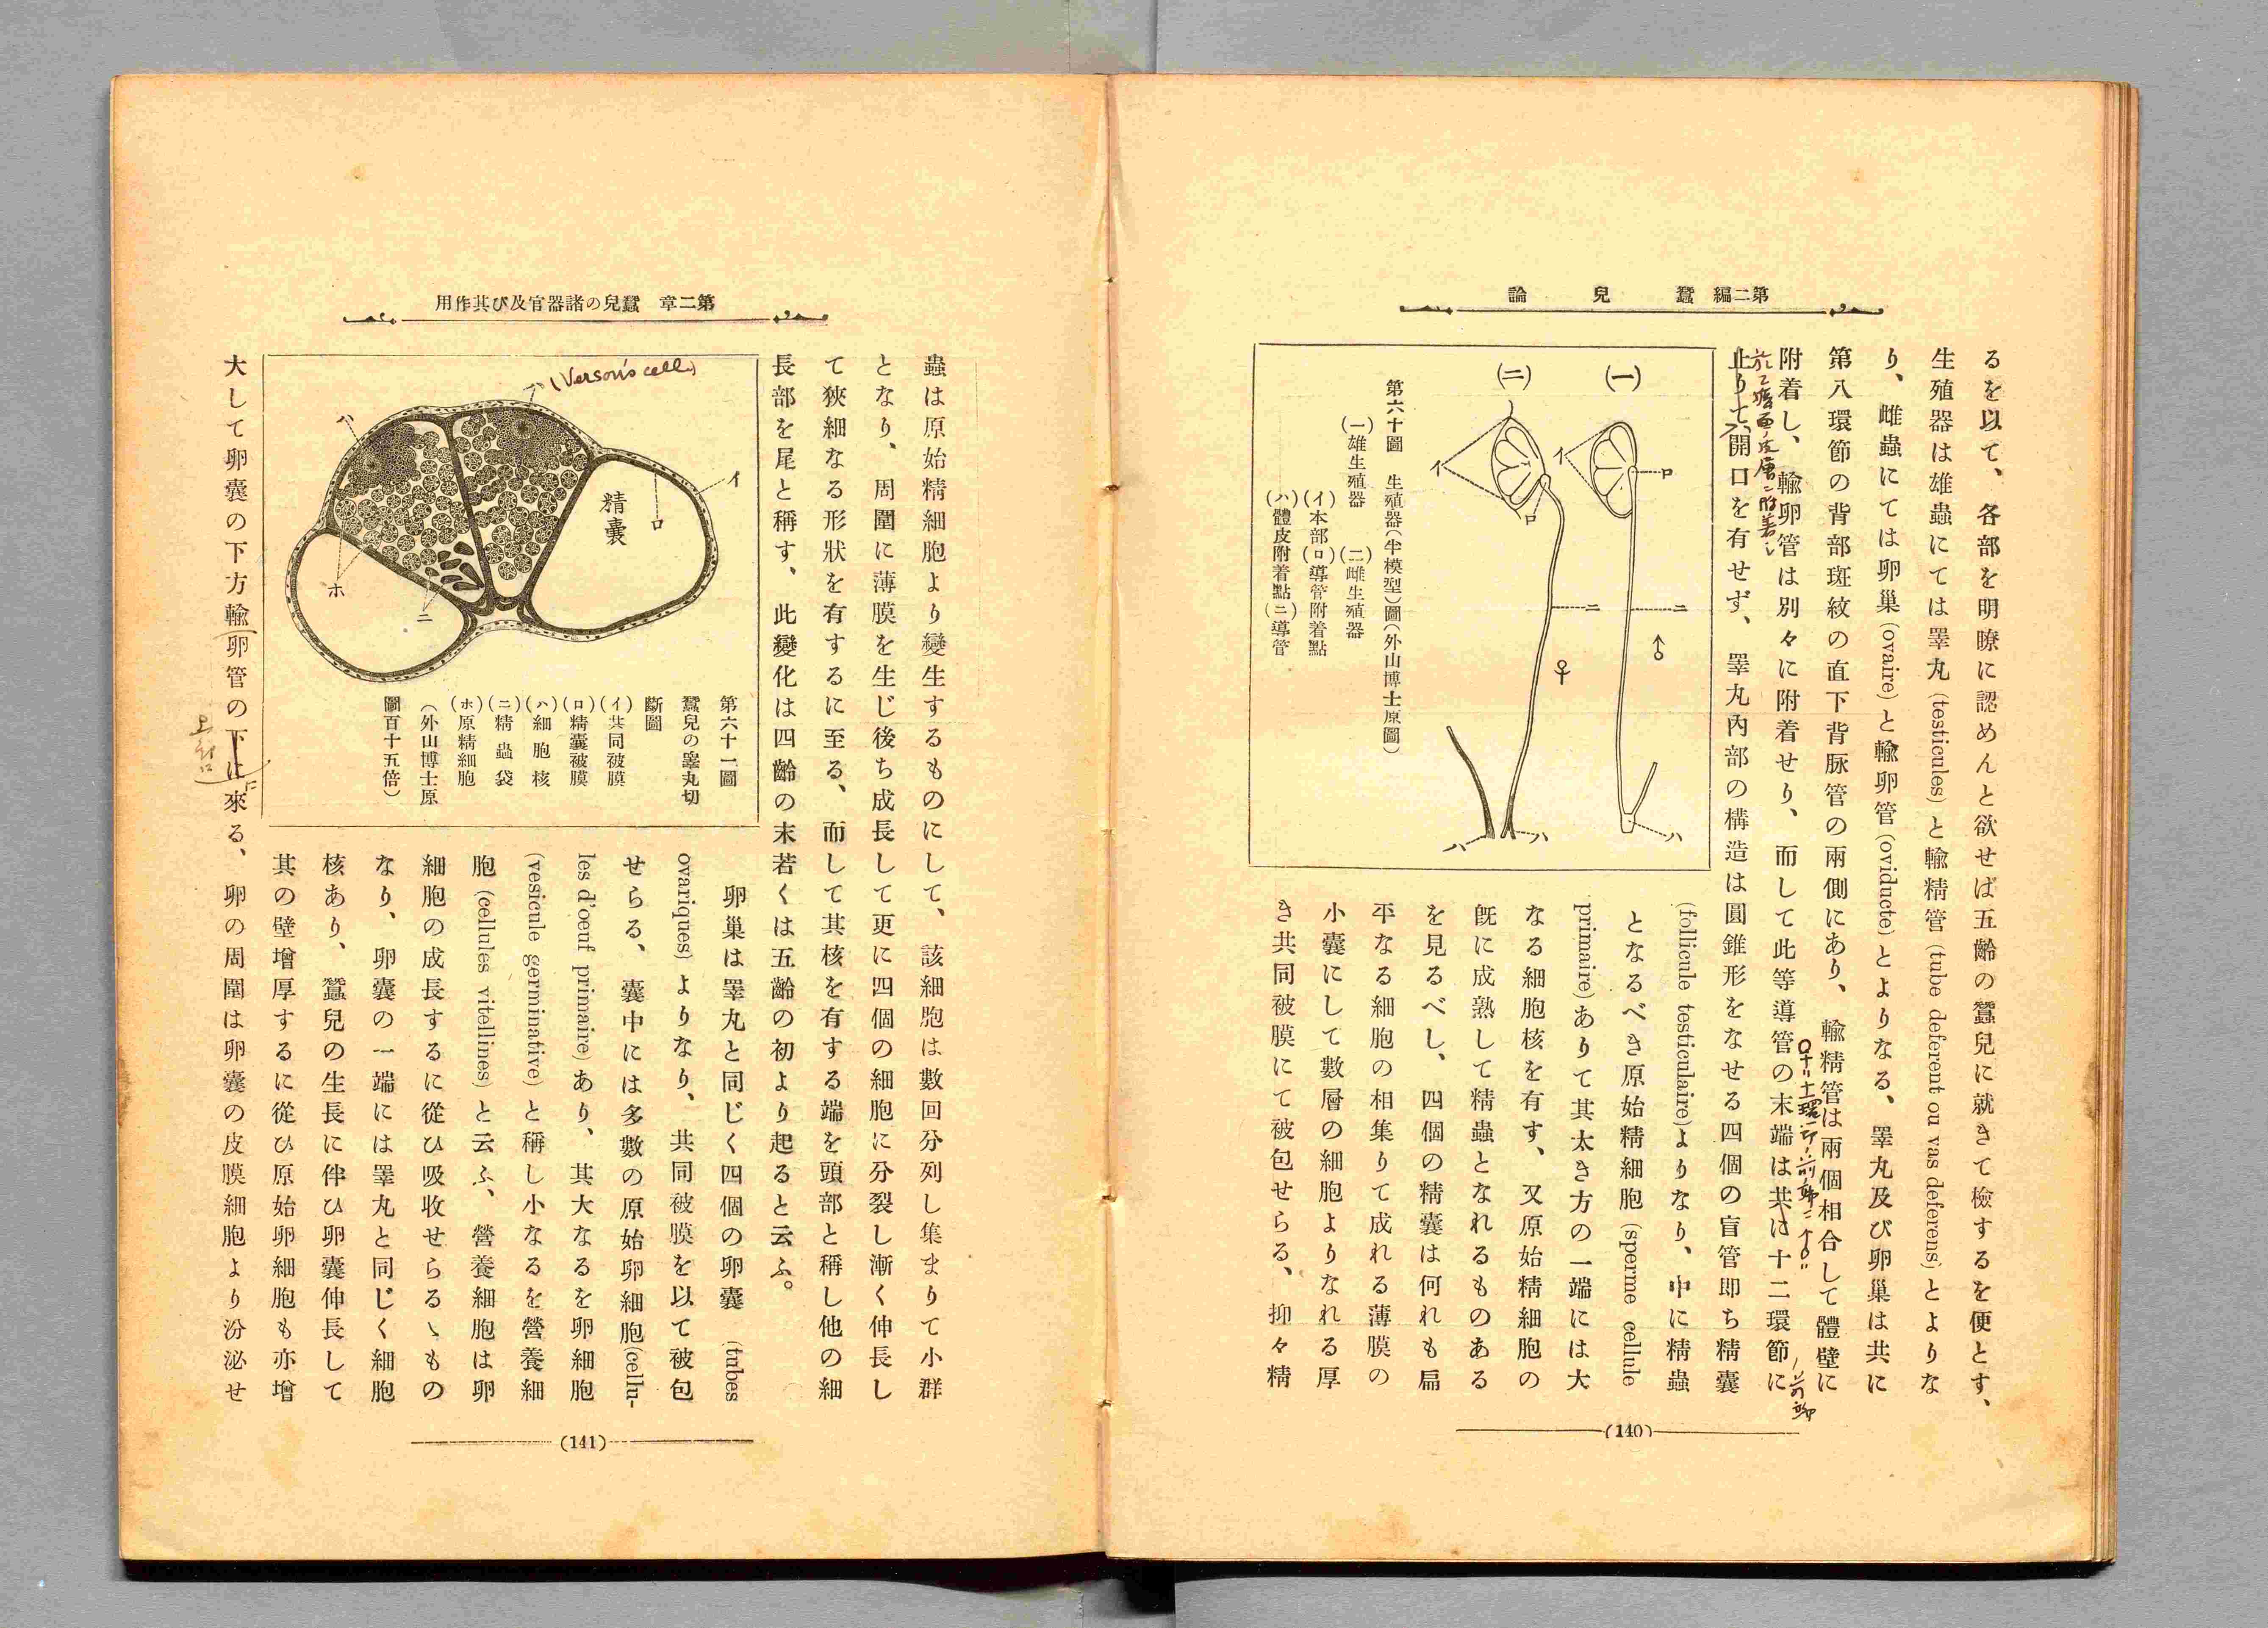 第二編 蠶兒論
るを以て、各部を明瞭に認めんと欲せば五齡の蠶兒に就きて檢するを便とす、
生殖器は雄蟲にては睪丸(testicules)と輸精管(tube deferent ou vas deferens)とよりな
り、雌蟲にては卵巢(ovaire)と輸卵管(oviducte)とよりなる、睪丸及び卵巢は共に
第八環節の背部斑紋の直下背脉管の兩側にあり、輸精管は兩個相合して體壁に
附着し、輸卵管は別々に附着せり、而して此等導管の末端は共に十二環節に
止りて、開口を有せず、睪丸內部の構造は圓錐形をなせる四個の盲管即ち精囊
(follicule testiculaire)よりなり、中に精蟲
となるべき原始精細胞(sperme cellule
primaire)ありて其太き方の一端には大
なる細胞核を有す、又原始精細胞の
旣に成熟して精蟲となれるものある
を見るべし、四個の精囊は何れも扁
平なる細胞の相集りて成れる薄膜の
小囊にして數層の細胞よりなれる厚
き共同被膜にて被包せらる、抑々精
(一)
(二)
イ
ロ
ニ
ハ
♂
イ
ロ
ニ
ハ
ハ
♀
第六十圖 生殖器(半模型)圖(外山博士原圖)
(一)雄生殖器 (二)雌生殖器
(イ)本部(ロ)導管附着點
(ハ)體皮附着點(ニ)導管
ノ前節
(140)
第二章 蠶兒の諸器官及び其作用
蟲は原始精細胞より變生するものにして、該細胞は數回分列し集まりて小群
となり、周圍に薄膜を生じ後ち成長して更に四個の細胞に分裂し漸く伸長し
て狹細なる形狀を有するに至る、而して其核を有する端を頭部と稱し他の細
長部を尾と稱す、此變化は四齡の末若くは五齡の初より起ると云ふ。
卵巢は睪丸と同じく四個の卵囊(tubes
ovariques)よりなり、共同被膜を以て被包
せらる、囊中には多數の原始卵細胞(cellu-
les d'oeuf primaire)あり、其大なるを卵細胞
(vesicule germinative)と稱し小なるを營養細
胞(cellules vitellines)と云ふ、營養細胞は卵
細胞の成長するに從ひ吸收せらるゝもの
なり、卵囊の一端には睪丸と同じく細胞
核あり、蠶兒の生長に伴ひ卵囊伸長して
其の壁增厚するに從ひ原始卵細胞も亦增
大して卵囊の下方輸卵管の下に來る、卵の周圍は卵囊の皮膜細胞より汾泌せ
(Verson's cell)
ハ
ハ
イ
ロ
精囊
ホ
ニ
第六十一圖
蠶兒の睪丸切
斷圖
(イ)共同被膜
(ロ)精囊被膜
(ハ)細胞核
(ニ)精蟲袋
(ホ)原精細胞
(外山博士原
圖百十五倍)
(141)